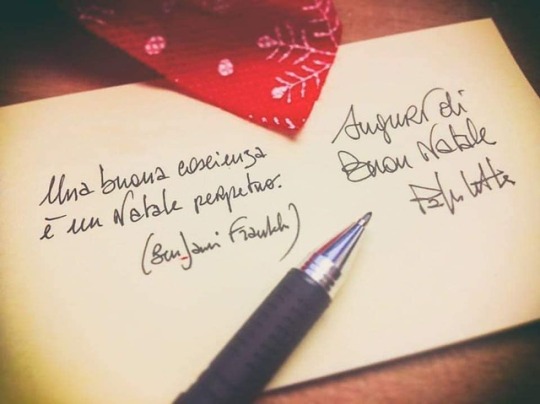 Una buona coscienza
è un Natale perpetuo.
(Benjami Franklin)
Auguri di
Buon Natale